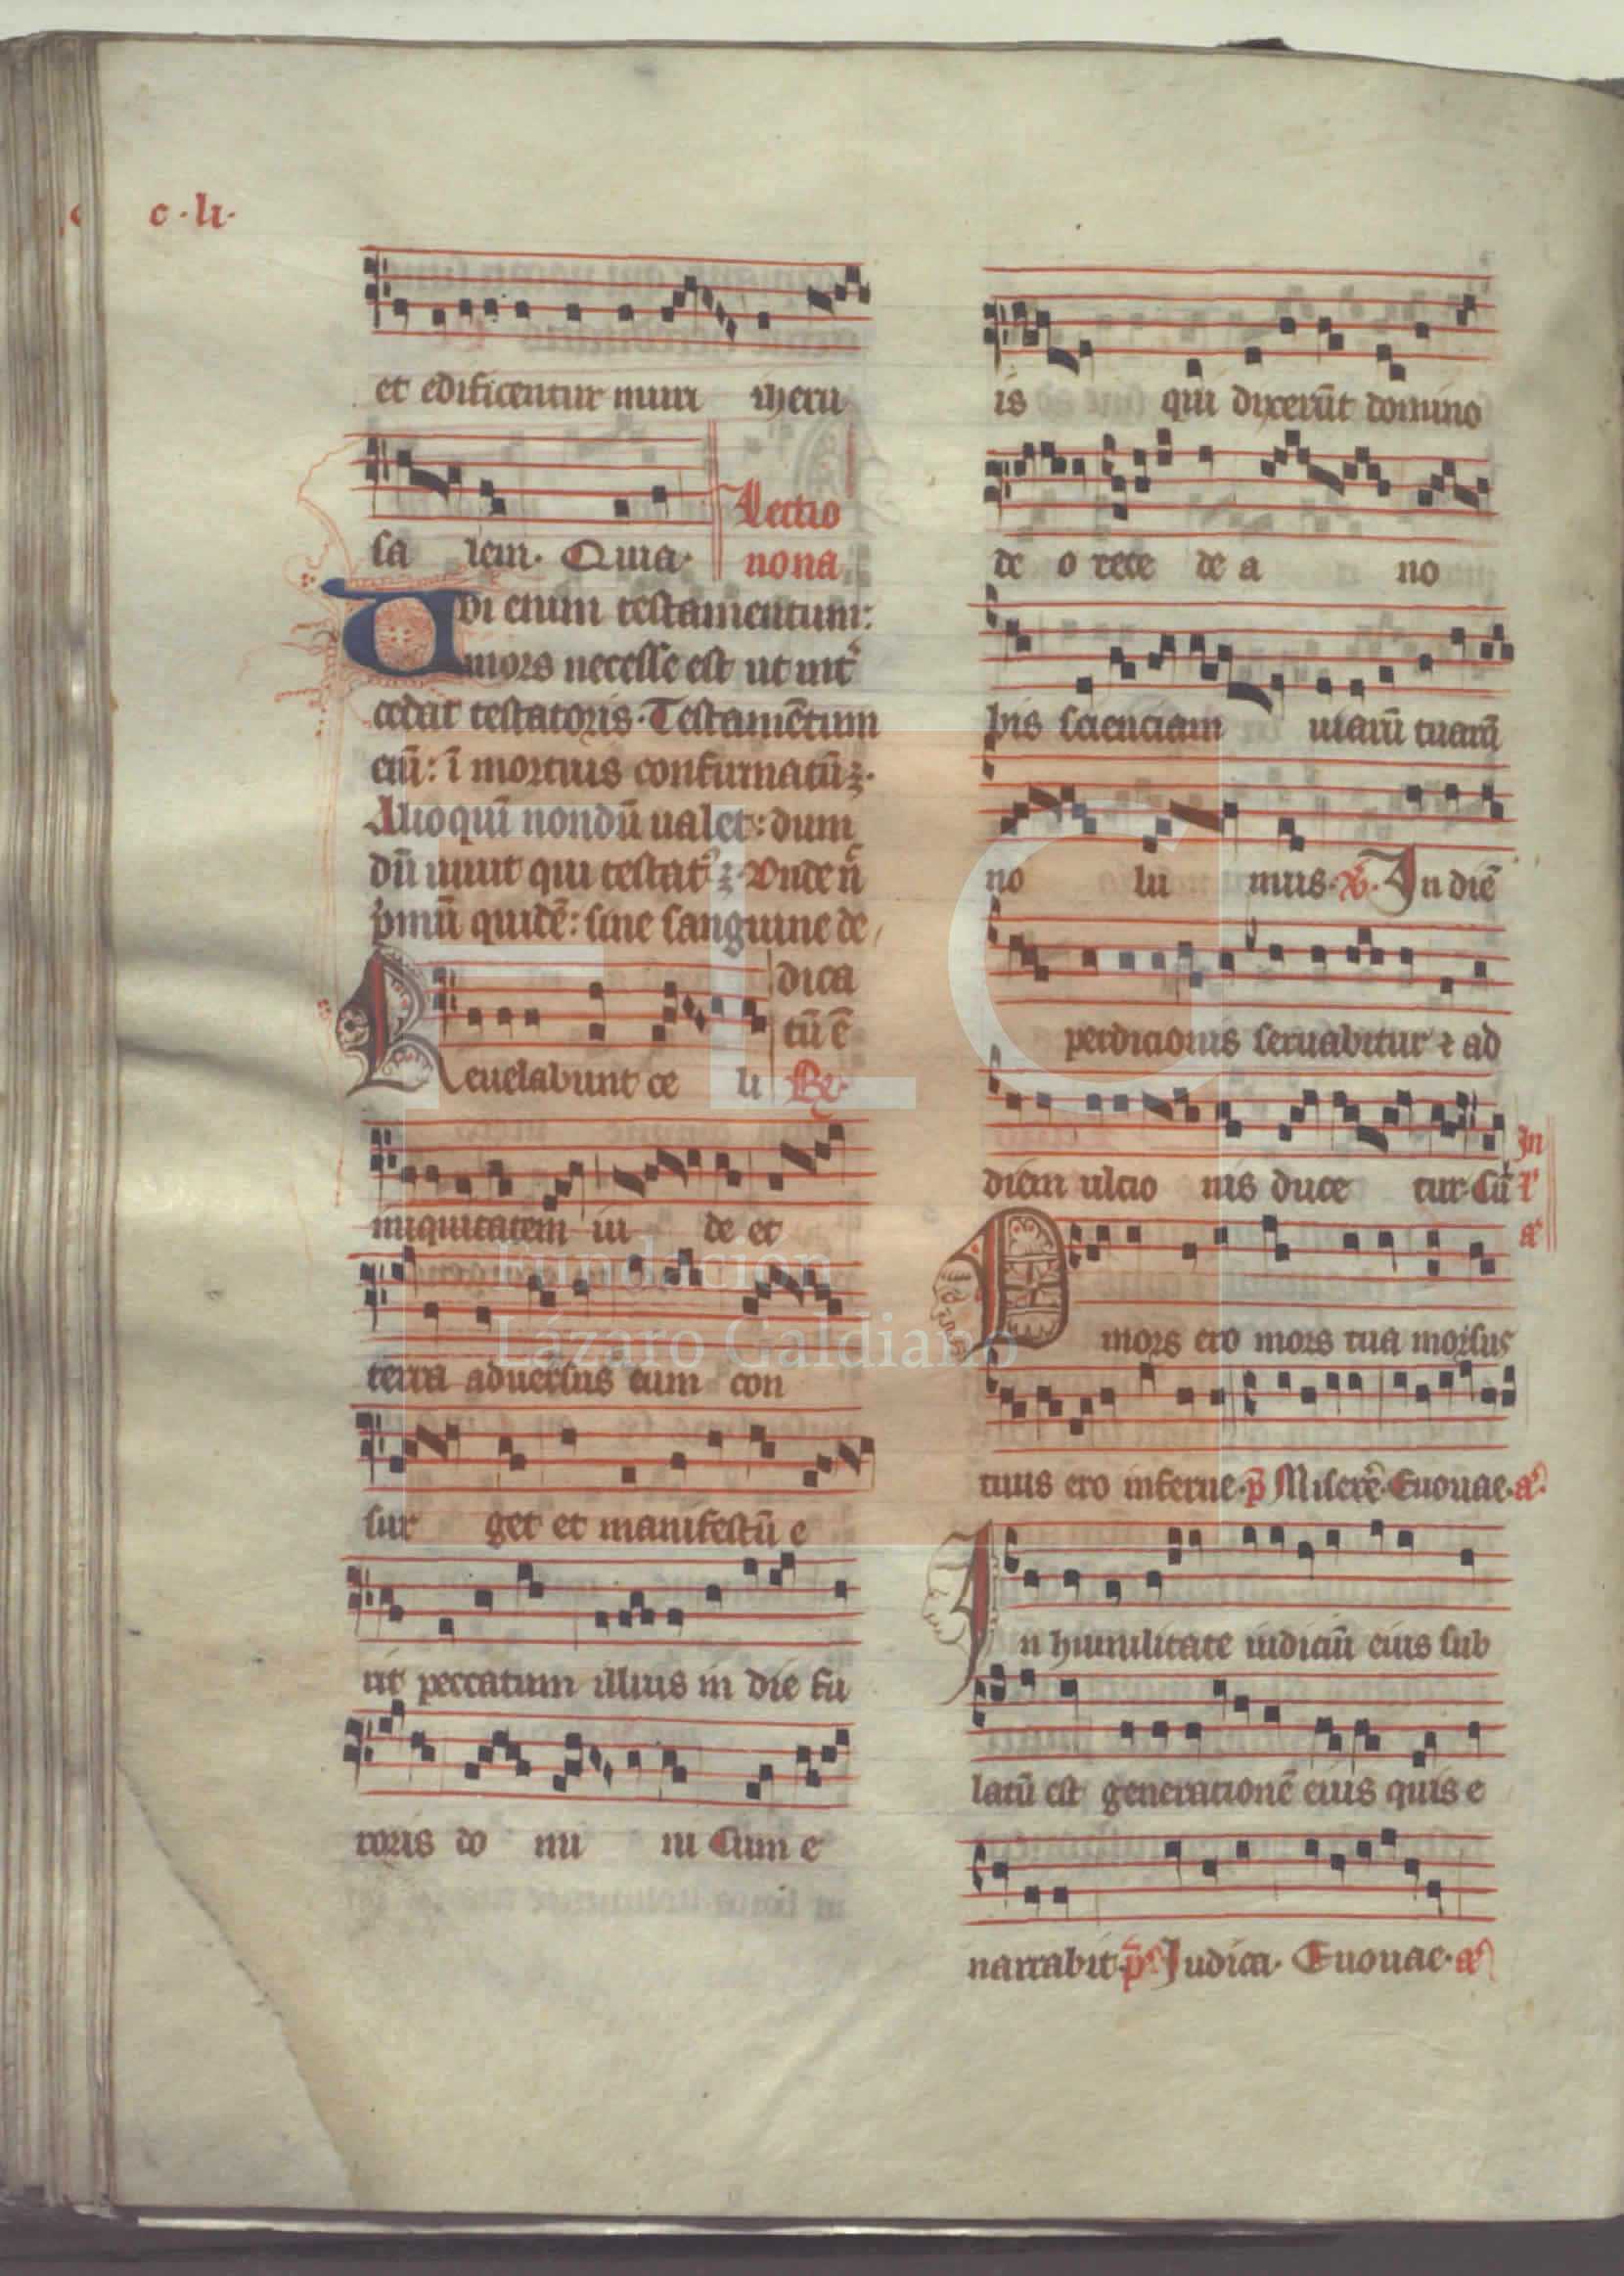 c · li ·
et edificentur muri iheru
sa lem. Quia.
Lectio
nona
Ubi enim testamentum:
mors necesse est ut int͛
cedat testatoris. Testamētum
eni̅: ī mortuis confirmatū ꝫ.
Alioquī nondū ualet: dum
dū uiuit qui testat᷑ ꝫ. Vnde n̄
pͥmū quidē: sine sanguine de
dica
tū ē
Reuelabunt ce li ℟
iniquitatem iu de et
terra aduersus eum con
sur get et manifestū e
rit peccatum illius in die fu
roris do mi ni Cum e
is qui dixerūt domino
de o rece de a no
bis scienciam uiarū tuarū
no lu mus. ℣. In diē
perdicionis seruabitur ⁊ ad
diem ulcio nis duce tur. Cū
In
l'
a᷑
O mors ero mors tua morsus
tuus ero inferne. p̄ᷤ Miserē. Euouae. a᷑.
In humilitate iudiciū eius sub
latū est generationē eius quis e
narrabit. p̄ᷤ Judica. Euouae. a᷑
FLG
Fundación
Lázaro Galdiano